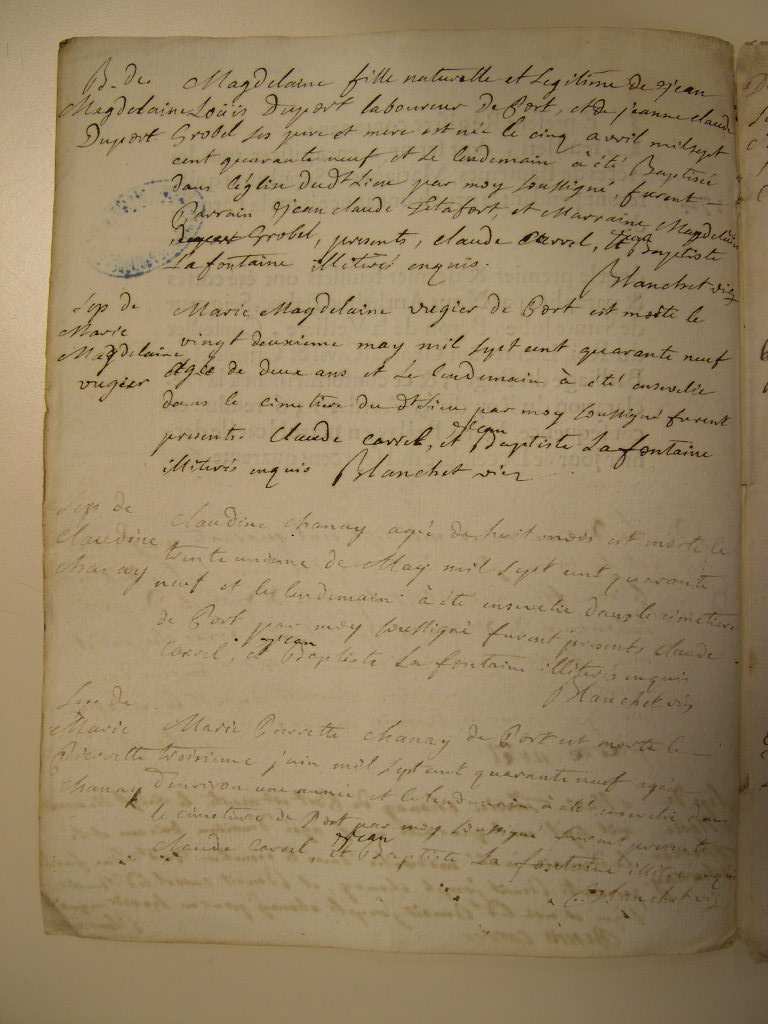 B. de Magdelaine fille naturelle et Legitime de jean
Magdelaine Louis Duport laboureur de Port, et de jeanne claude
Duport Grobel ses pere et mere est née le cinq avril mil sept
cent quarante neuf et Le lendemain à été Baptisée
dans l'église dud^t Lieu par moy soussigné, furent
Parrain jean claude Létafort, et Marraine Magdelaine
Grobel, presents, claude carrel, jean Baptiste
La fontaine illiterés enquis.
Blanchet vic
Sep de Marie Magdelaine vugier de Port est morte le
Marie vingt deuxieme may mil sept cent quarante neuf
Magdelaine agée de deux ans et Le lendemain à été ensevelie
vugier dans le cimetiere du d^t Lieu par moy soussigné furent
presents. claude carrel, et jean Baptiste La fontaine
illiterés enquis Blanchet vic
Sep de
claudine claudine chanay agée de huit mois est morte le
chanay trente unieme de May mil sept cent quarante
neuf et le lendemain à été ensevelie dans le cimetiere
de Port par moy soussigné furent presents claude
carrel, et jean Baptiste La fontaine illiterés enquis
Blanchet vic
Sep de
Marie Marie Pierrette chanay de Port est morte le
Pierrette troisieme juin mil sept cent quarante neuf agée
chanay d'environ une année et le lendemain à été ensevelie dans
le cimetiere de Port par moy soussigné furent presents
claude carrel et jean Baptiste La fontaine illiterés enquis
Blanchet vic